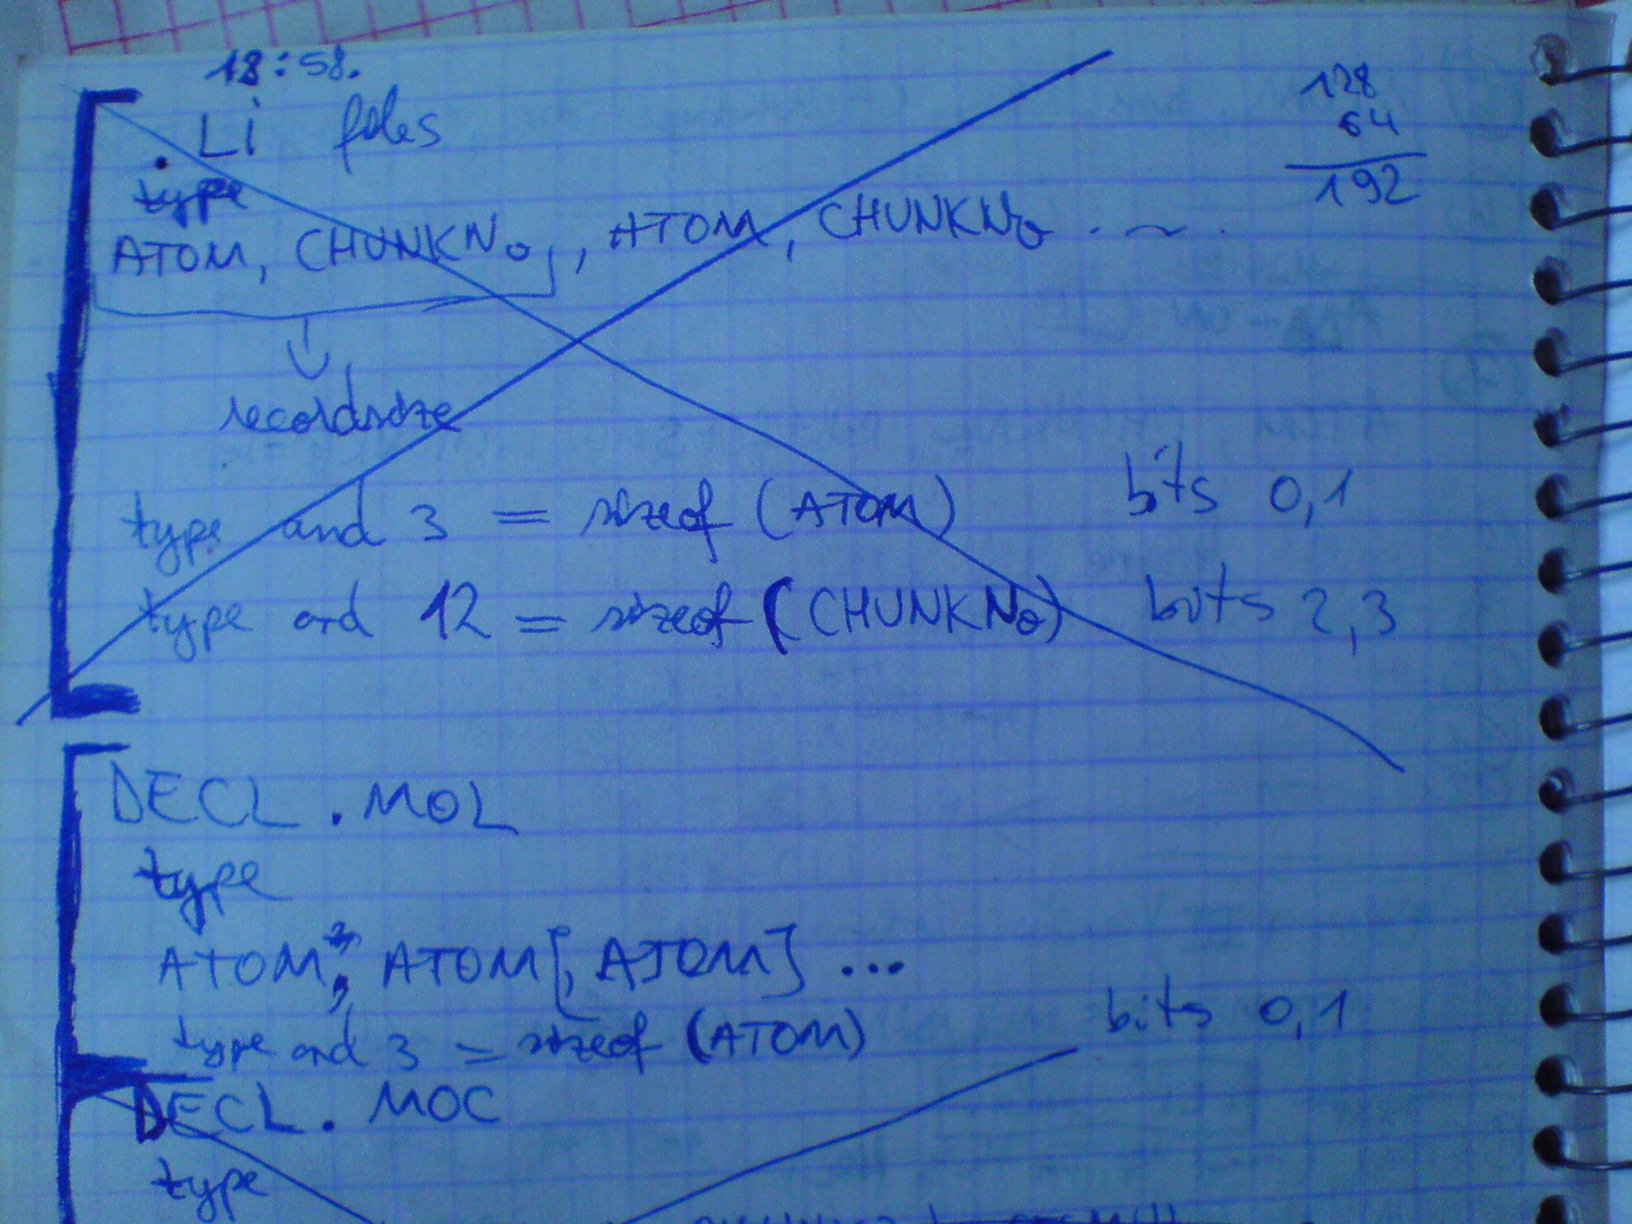 18:58.
128
64
192
.Li files
type
ATOM, CHUNKNo, ATOM, CHUNKNo . ~ .
recordsize
type and 3 = sizeof (ATOM) bits 0,1
type and 12 = sizeof (CHUNKNo) bits 2,3
DECL.MOL
type
ATOM, ATOM[, ATOM] ...
type and 3 = sizeof (ATOM) bits 0,1
DECL. MOC
type